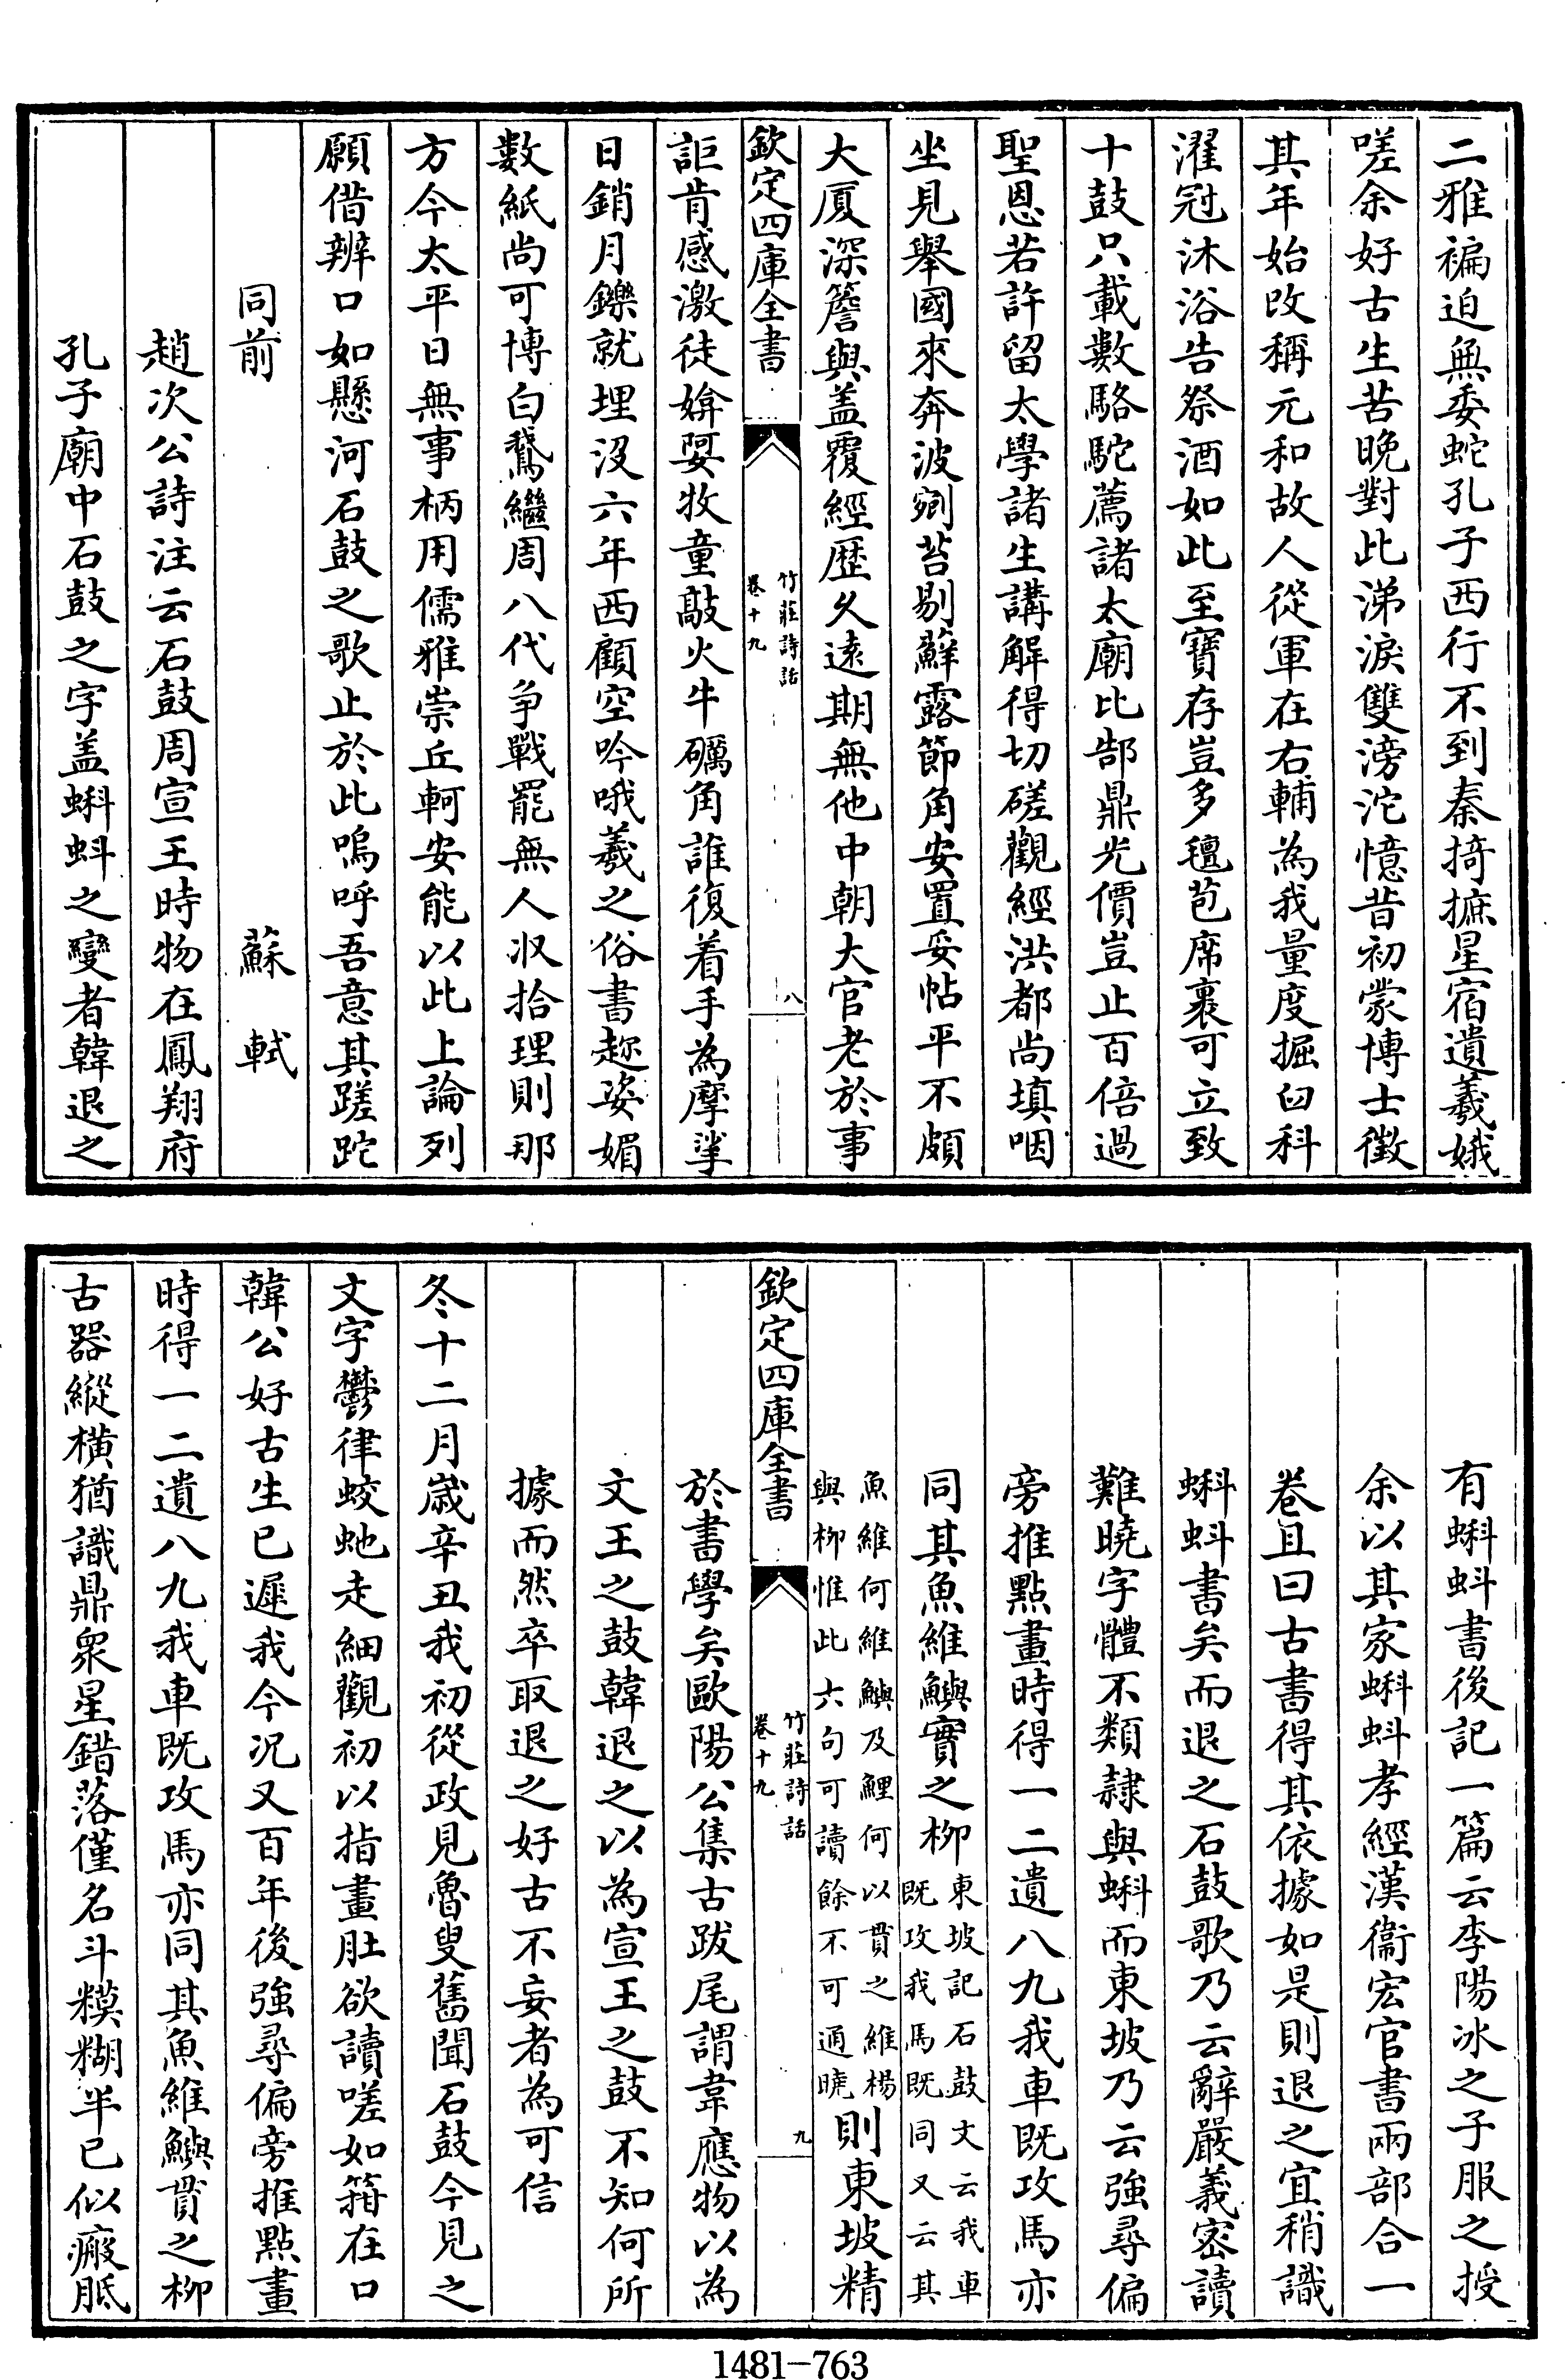 二雅褊迫無委蛇孔子西行不到秦掎摭星宿遺羲娥
嗟余好古生苦晚對此涕淚雙滂沱憶昔初蒙博士徵
其年始改稱元和故人從軍在右輔為我量度掘臼科
濯冠沐浴告祭酒如此至寶存豈多氊苞席裹可立致
十鼓只載數駱駝薦諸太廟比郜鼎光價豈止百倍過
聖恩若許留太學諸生講解得切磋觀經洪都尚填咽
坐見舉國來奔波剜苔剔蘚露節角安置妥帖平不頗
大厦深簷與盖覆經歴久遠期無他中朝大官老於事
欽定四庫全書
竹莊詩話
卷十九
八
詎肯感激徒媕娿牧童敲火牛礪角誰復着手為摩挲
日銷月鑠就埋沒六年西顧空吟哦羲之俗書趂姿媚
數紙尚可博白鵞繼周八代争戰罷無人收拾理則那
方今太平日無事柄用儒雅崇丘軻安能以此上論列
願借辨口如懸河石鼓之歌止於此嗚呼吾意其蹉跎
同前 蘇軾
趙次公詩注云石鼓周宣王時物在鳳翔府
孔子廟中石鼓之字盖蝌蚪之變者韓退之
有蝌蚪書後記一篇云李陽冰之子服之授
余以其家蝌蚪孝經漢衞宏官書兩部合一
卷且曰古書得其依據如是則退之宜稍識
蝌蚪書矣而退之石鼓歌乃云辭嚴義密讀
難曉字體不類隸與蝌而東坡乃云強尋偏
旁推點畫時得一二遺八九我車既攻馬亦
同其魚維鱮實之柳東坡記石鼓文云我車
既攻我馬既同又云其
魚維何維鱮及鯉何以貫之維楊
與柳惟此六句可讀餘不可通曉則東坡精
欽定四庫全書
竹莊詩話
卷十九
九
於書學矣歐陽公集古跋尾謂韋應物以為
文王之鼓韓退之以為宣王之鼓不知何所
據而然卒取退之好古不妄者為可信
冬十二月歲辛丑我初從政見魯叟舊聞石鼓今見之
文字鬱律蛟虵走細觀初以指畫肚欲讀嗟如箝在口
韓公好古生已遲我今况又百年後強尋偏旁推點畫
時得一二遺八九我車既攻馬亦同其魚維鱮貫之柳
古器縱橫猶識鼎衆星錯落僅名斗糢糊半已似瘢胝
1481-763